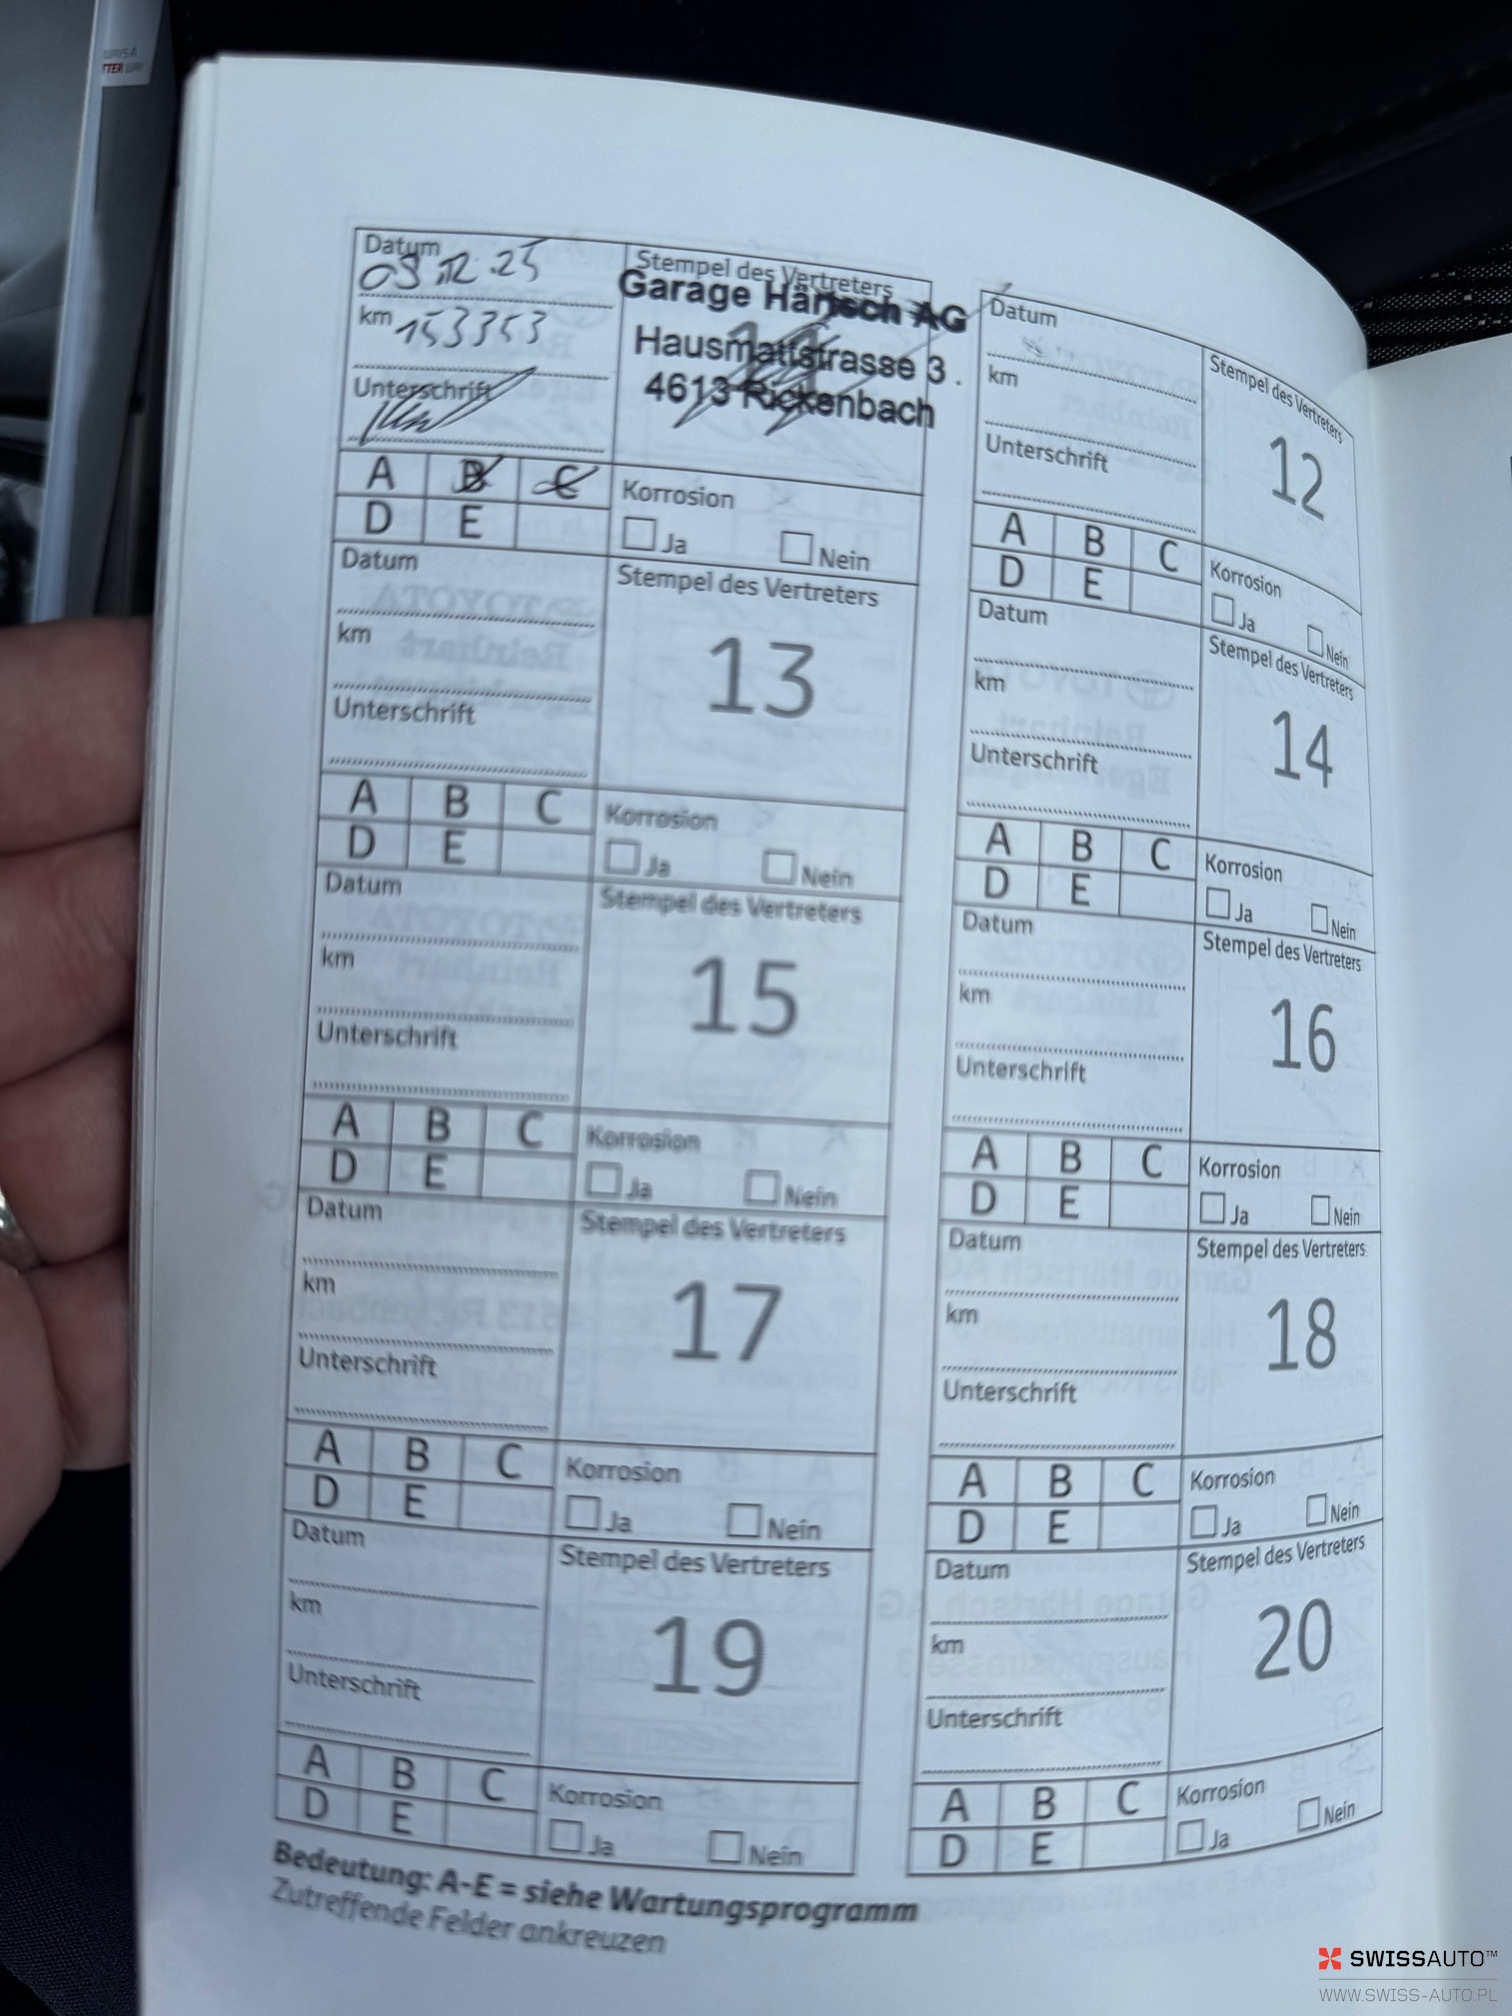 Datum
09.12.25
km 153353
Unterschrift
Stempel des Vertreters
Garage Härtsch AG
Hausmattstrasse 3.
4613 Rickenbach
A B C
D E
Korrosion
Ja Nein
Datum
km
Unterschrift
Stempel des Vertreters
12
A B C
D E
Korrosion
Ja Nein
Datum
km
Unterschrift
Stempel des Vertreters
13
A B C
D E
Korrosion
Ja Nein
Datum
km
Unterschrift
Stempel des Vertreters
14
A B C
D E
Korrosion
Ja Nein
Datum
km
Unterschrift
Stempel des Vertreters
15
A B C
D E
Korrosion
Ja Nein
Datum
km
Unterschrift
Stempel des Vertreters
16
A B C
D E
Korrosion
Ja Nein
Datum
km
Unterschrift
Stempel des Vertreters
17
A B C
D E
Korrosion
Ja Nein
Datum
km
Unterschrift
Stempel des Vertreters
18
A B C
D E
Korrosion
Ja Nein
Datum
km
Unterschrift
Stempel des Vertreters
19
A B C
D E
Korrosion
Ja Nein
Datum
km
Unterschrift
Stempel des Vertreters
20
A B C
D E
Korrosion
Ja Nein
Bedeutung: A-E = siehe Wartungsprogramm
Zutreffende Felder ankreuzen
SWISSAUTO™
WWW.SWISS-AUTO.PL